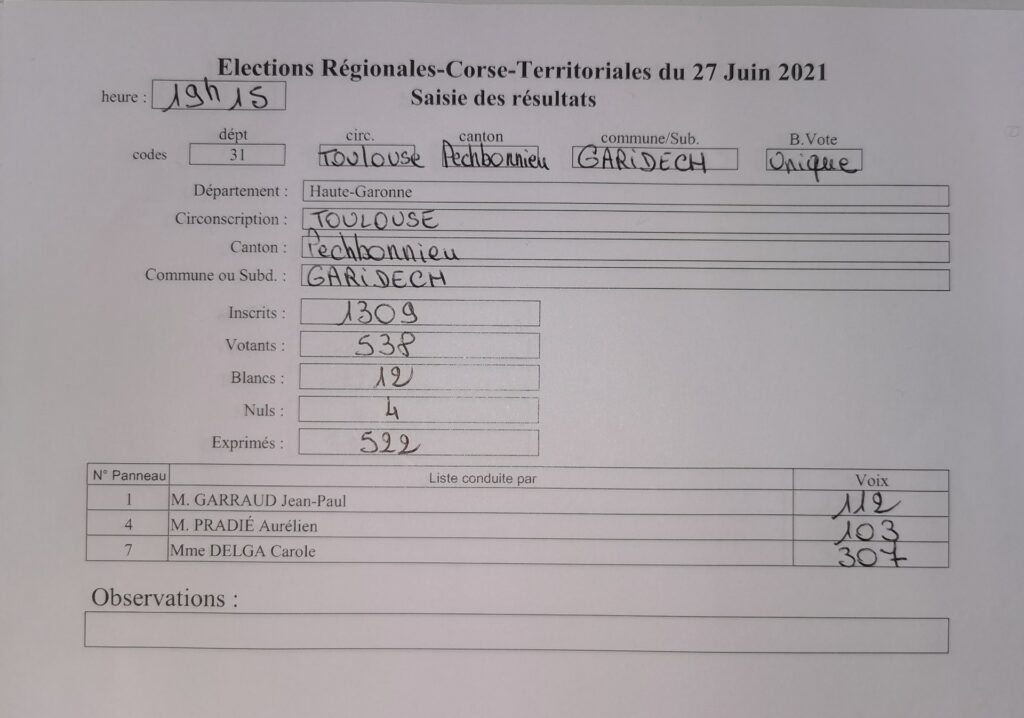 Elections Régionales-Corse-Territoriales du 27 Juin 2021
heure : 19h15
Saisie des résultats
dépt circ. canton commune/Sub. B.Vote
codes 31 TOULOUSE Pechbonnieu GARiDECH Unique
Département : Haute-Garonne
Circonscription : TOULOUSE
Canton : Pechbonnieu
Commune ou Subd. : GARiDECH
Inscrits : 1309
Votants : 538
Blancs : 12
Nuls : 4
Exprimés : 522
N° Panneau Liste conduite par Voix
1 M. GARRAUD Jean-Paul 112
4 M. PRADIÉ Aurélien 103
7 Mme DELGA Carole 307
Observations :